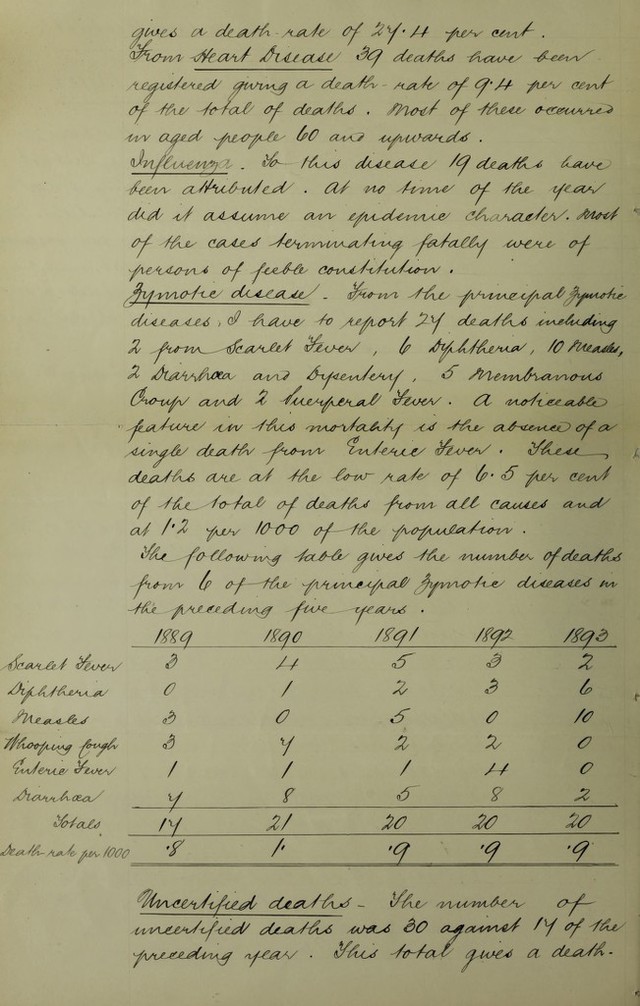 gives a death-rate of 27.4 per cent.
From Heart Disease 39 deaths have been
registered giving a death-rate of 9.4 per cent
of the total of deaths. Most of these occurred
in aged people 60 and upwards.
Influenza. To this disease 19 deaths have
been attributed. At no time of the year
did it assume an epidemic character. Most
of the cases terminating fatally were of
persons of feeble constitution.
Zymotic disease - From the principal Zymotic
diseases, I have to report 27 deaths including
2 from Scarlet Fever, 6 Diphtheria, 10 Measles,
2 Diarrhœa and Dysentery, 5 Membranous
Croup and 2 Puerperal Fever. A noticeable
feature in this mortality is the absence of a
single death from Enteric Fever. These
deaths are at the low rate of 6.5 per cent
of the total of deaths from all causes and
at 1.2 per 1000 of the population.
The following table gives the number of deaths
from 6 of the principal Zymotic diseases in
the preceding five years.
1889 1890 1891 1892 1893
Scarlet Fever 3 4 5 3 2
Diphtheria 0 1 2 3 6
Measles 3 0 5 0 10
Whooping Cough 3 7 2 2 0
Enteric Fever 1 1 1 4 0
Diarrhœa 7 8 5 8 2
Totals 17 21 20 20 20
Death-rate per 1000 .8 1. .9 .9 .9
Uncertified deaths - The number of
uncertified deaths was 30 against 17 of the
preceding year. This total gives a death-